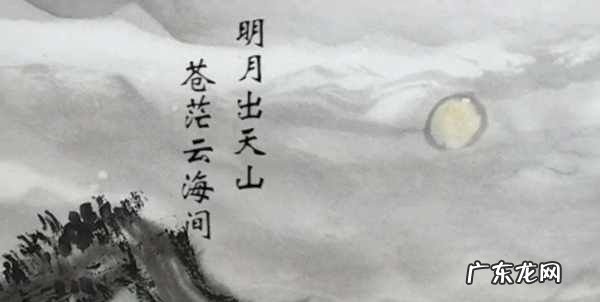 明月出天山
苍茫云海间
广东龙网